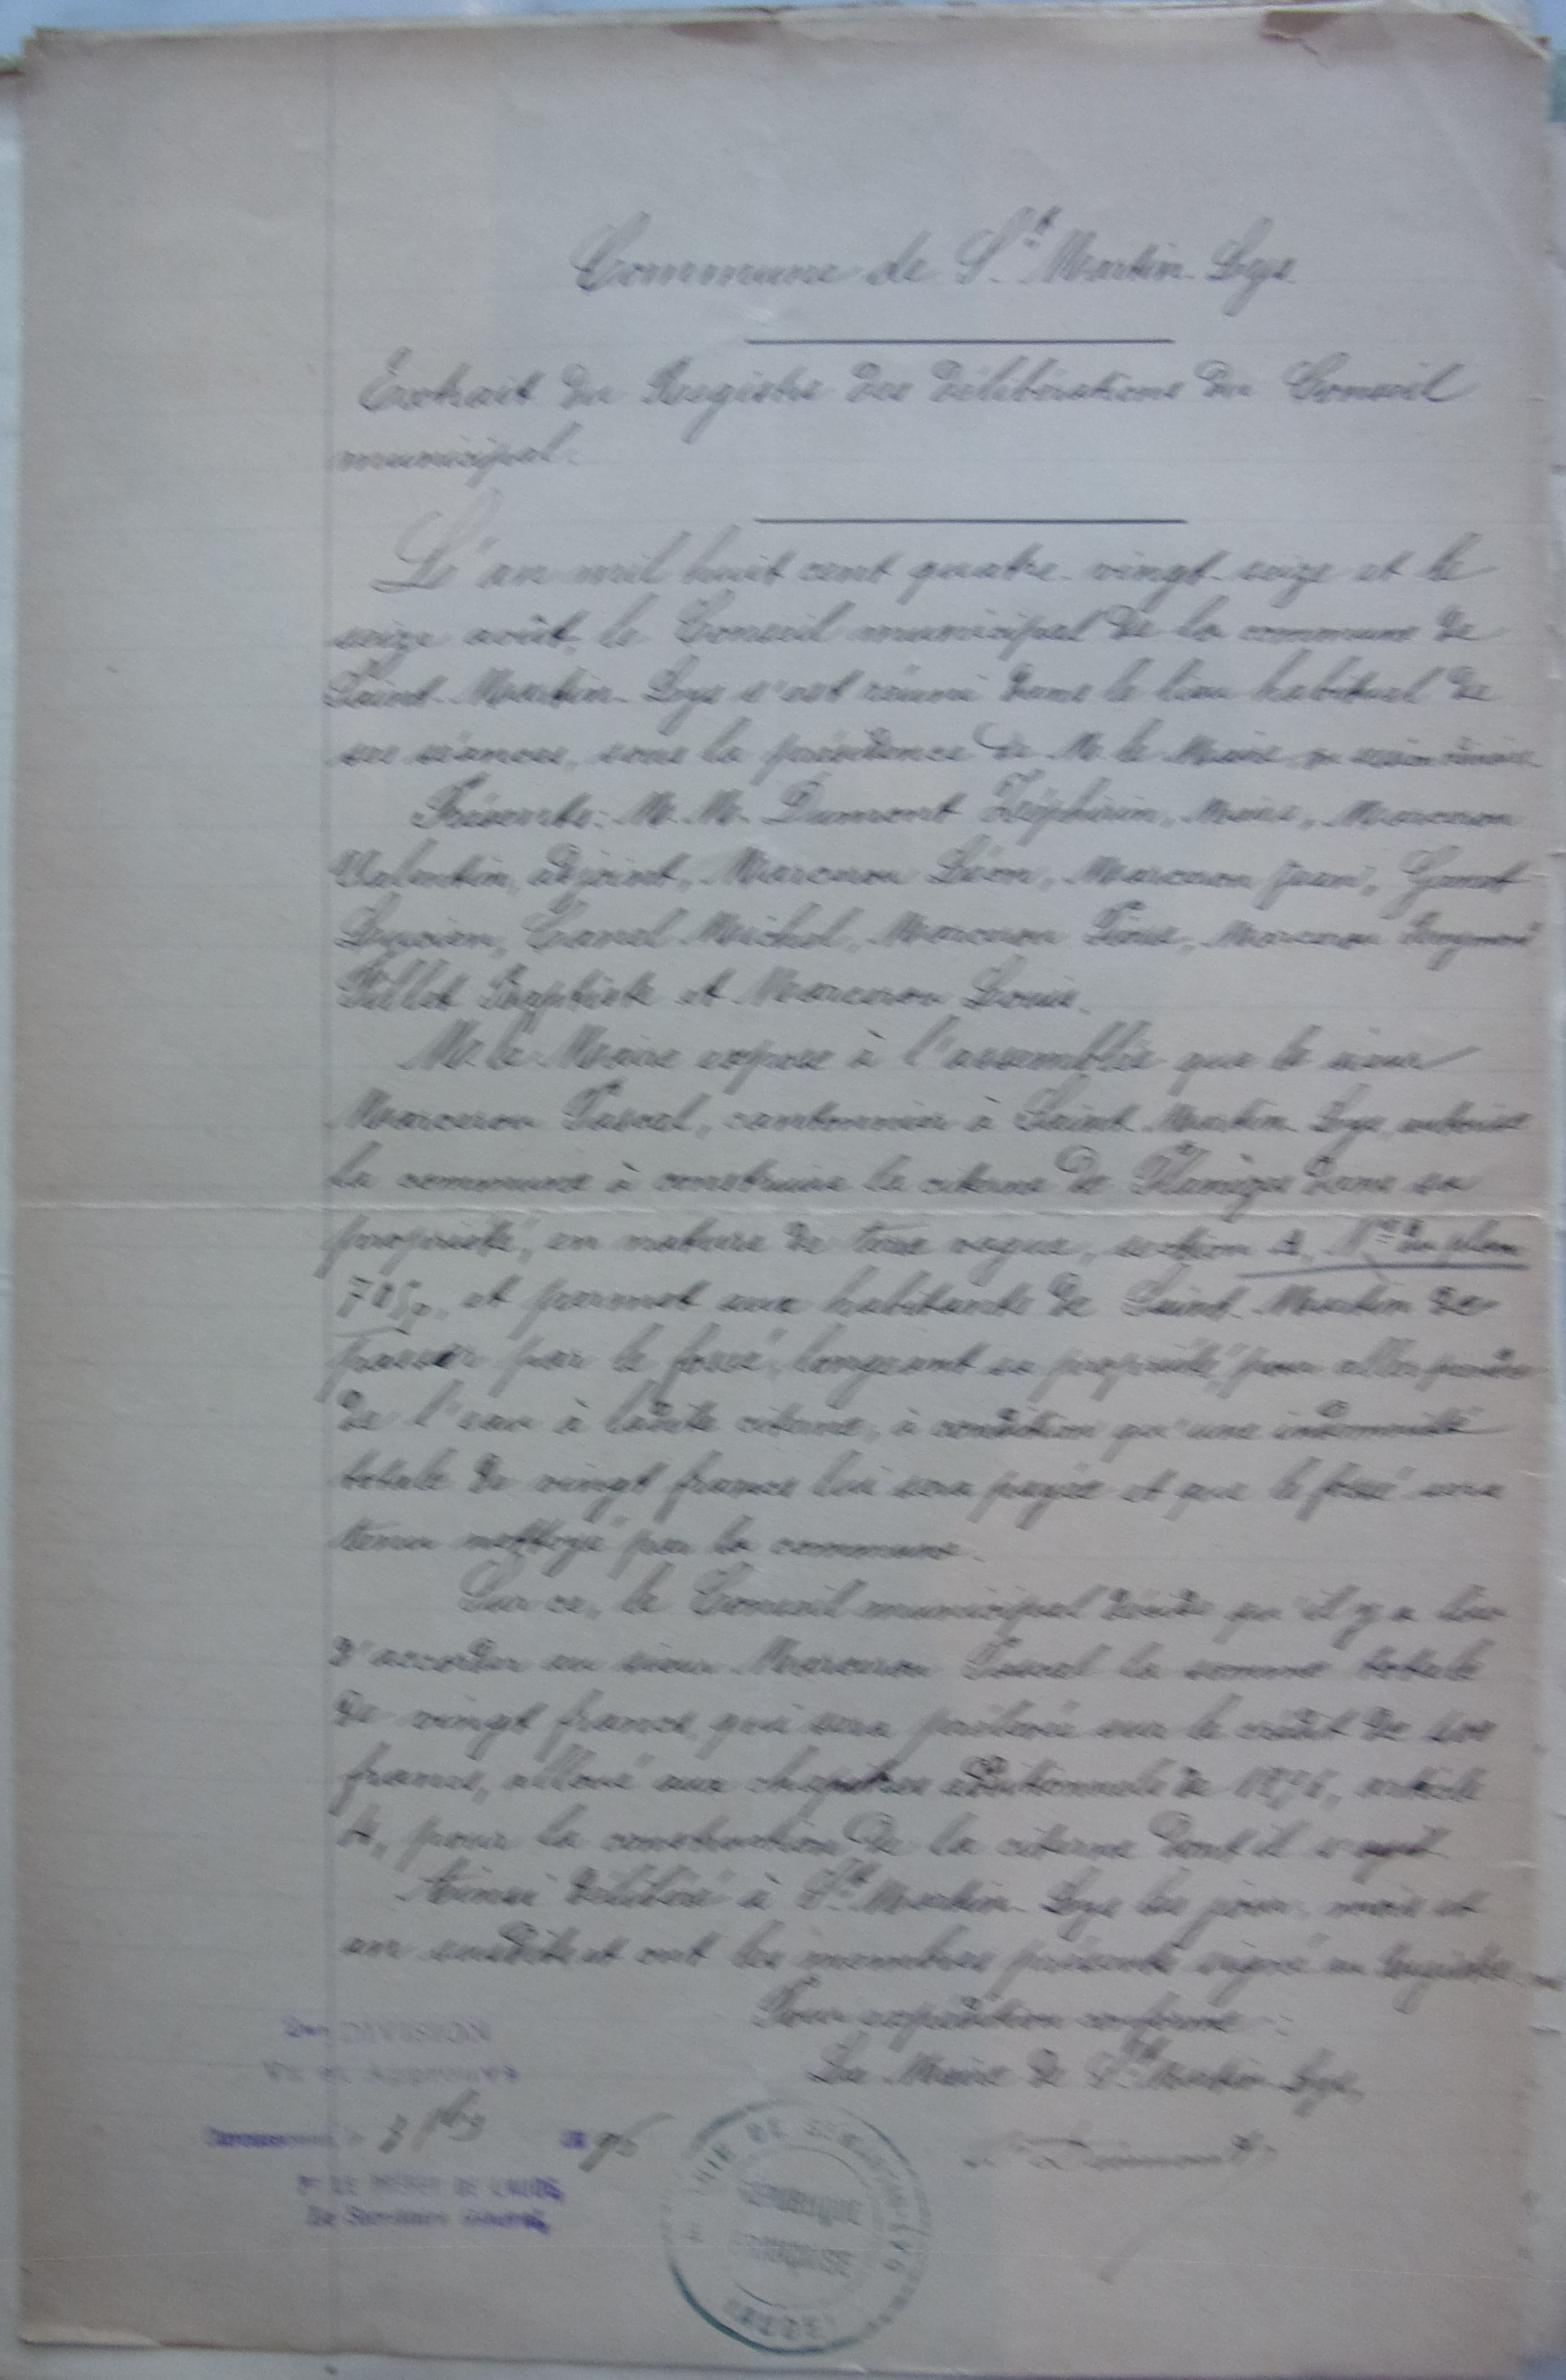 Commune de St Martin-Lys
Extrait du Registre des délibérations du Conseil
municipal.
L'an mil huit cent quatre-vingt-seize et le
seize août, le Conseil municipal de la commune de
Saint-Martin-Lys s'est réuni dans le lieu habituel de
ses séances, sous la présidence de M. le Maire en session
Présents: M. M. Dumont Zéphirin, Maire, Marceron
Valentin, adjoint, Marceron Léon, Marceron Jean,
Lucien, Canel Michel, Marceron Marceron
Baptiste et Marceron Louis.
M. le Maire expose à l'assemblée que le sieur
Marceron Pascal, cantonnier à Saint Martin-Lys, autorise
la commune à construire la citerne de dans sa
propriété, en nature de terre vague, section A, No du plan
705p, et permet aux habitants de Saint-Martin de
passer par le fossé, longeant sa propriété, pour aller prendre
de l'eau à ladite citerne, à condition qu'une indemnité
totale de vingt francs lui sera payée et que le fossé sera
tenu nettoyé par la commune.
Sur ce, le Conseil municipal décide qu'il y a lieu
d'accorder au sieur Marceron Pascal la somme totale
de vingt francs qui sera prélevée sur le crédit de
francs, alloué aux chapitres additionnels de 1896, article
pour la construction de la citerne dont il s'agit.
Ainsi délibéré à St Martin-Lys les jour, mois et
an susdits et ont les membres présents signé au registre.
Pour expédition conforme:
Le Maire de St Martin-Lys,
Dumont
2me DIVISION
Vu et Approuvé
Carcassonne, le 1896
Pr LE PRÉFET DE L'AUDE,
Le Secrétaire Général,
MAIRIE DE ST MARTIN-LYS
RÉPUBLIQUE
FRANÇAISE
(AUDE)